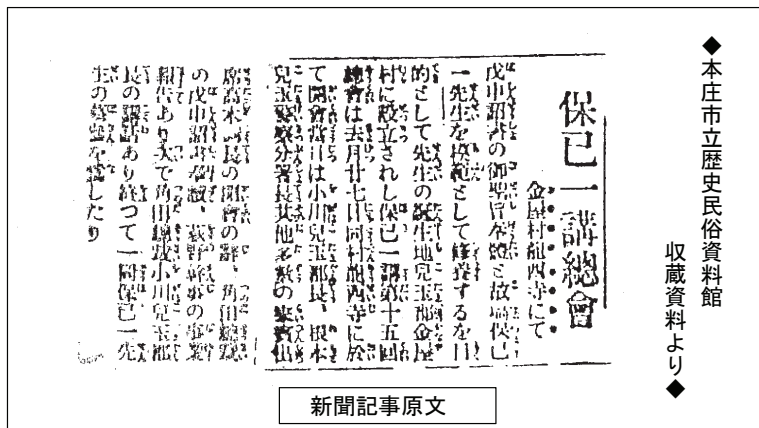 ◆本庄市立歴史民俗資料館
収蔵資料より◆
保己一講總會
金屋村龍西寺にて
戊申詔書の御聖旨奉體と故塙保己
一先生を模範として修養するを目
的として先生の誕生地兒玉郡金屋
村に設立されし保己一講第十五回
總會は去月廿七日同村龍西寺に於
て開會當日は小川兒玉郡長、根本
兒玉警察分署長其他多數の來賓出
席高木 長の開會の辭、角田
の戊申詔書奉讀、荻野幹事の事業
報告あり次で角田 小川兒玉郡
長の講話あり終つて一同保己一先
生の墓 を したり
新聞記事原文